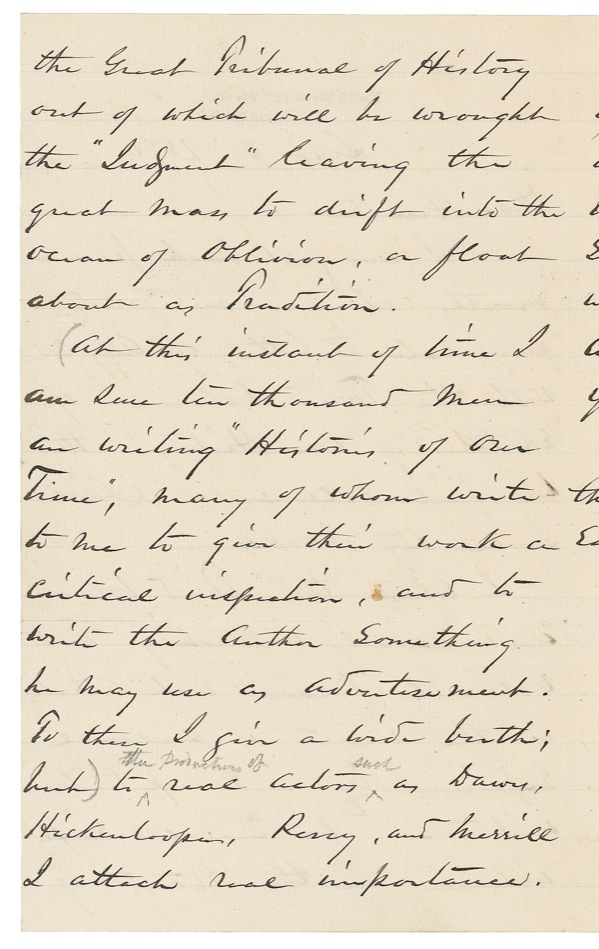 the Great Tribunal of History
out of which will be wrought
the "Judgment" leaving the
great mass to drift into the
ocean of Oblivion, or float
about as Tradition.
(At this instant of time I
am sure ten thousand men
are writing "Histories of Our
Time", many of whom write
to me to give their work a
critical inspection, and to
write the Author Something
he may use as Advertisement.
To these I give a wide berth;
the productions of such
but) to ^ real actors ^ as Dawes,
Hickenlooper, Revey, and Merrill
I attach real importance.